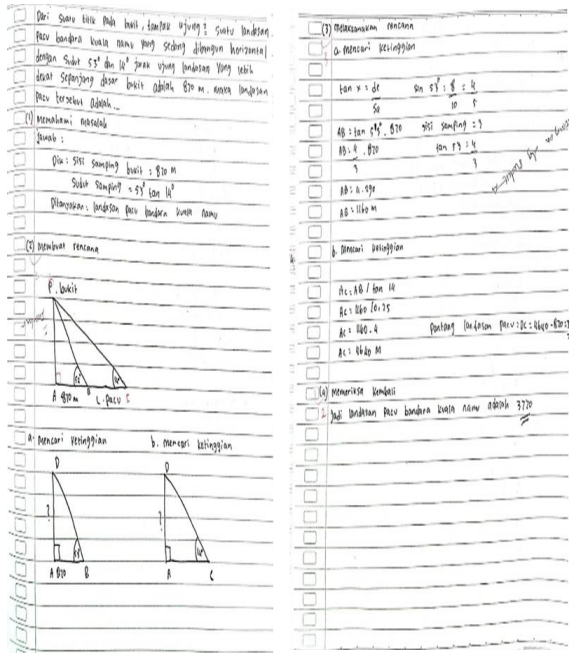 Dari suatu titik pada bukit, tampak ujung2 suatu landasan
pacu bandara kuala namu yang sedang dibangun horizontal
dengan sudut 53° dan 14° jarak ujung landasan yang lebih
dekat sepanjang dasar bukit adalah 870 m. maka landasan
pacu tersebut adalah...
(1) Memahami masalah
Jawab :
Dik : sisi samping bukit : 870 m
Sudut samping = 53° tan 14°
Ditanyakan : landasan pacu bandara kuala namu
(2) Membuat rencana
P. bukit
A 870 m B L. pacu C
a. Mencari ketinggian b. Mencari ketinggian
D D
? ?
53° 14°
A 870 B A C
(3) Melaksanakan rencana
a. Mencari ketinggian
tan x = de
sa
sin 53° : 8 : 4
10 5
AB : tan 53°. 870 sisi samping = 3
AB : 4 . 870 tan 53 : 4
3 3
AB : 4. 290
AB = 1160 m
b. Mencari ketinggian
AC : AB / tan 14
AC : 1160 / 0.25
AC : 1160 . 4 Pantang landasan pacu : DC = 4640 - 870 =
AC : 4640 M
(4) memeriksa kembali
Jadi landasan pacu bandara kuala namu adalah 3770